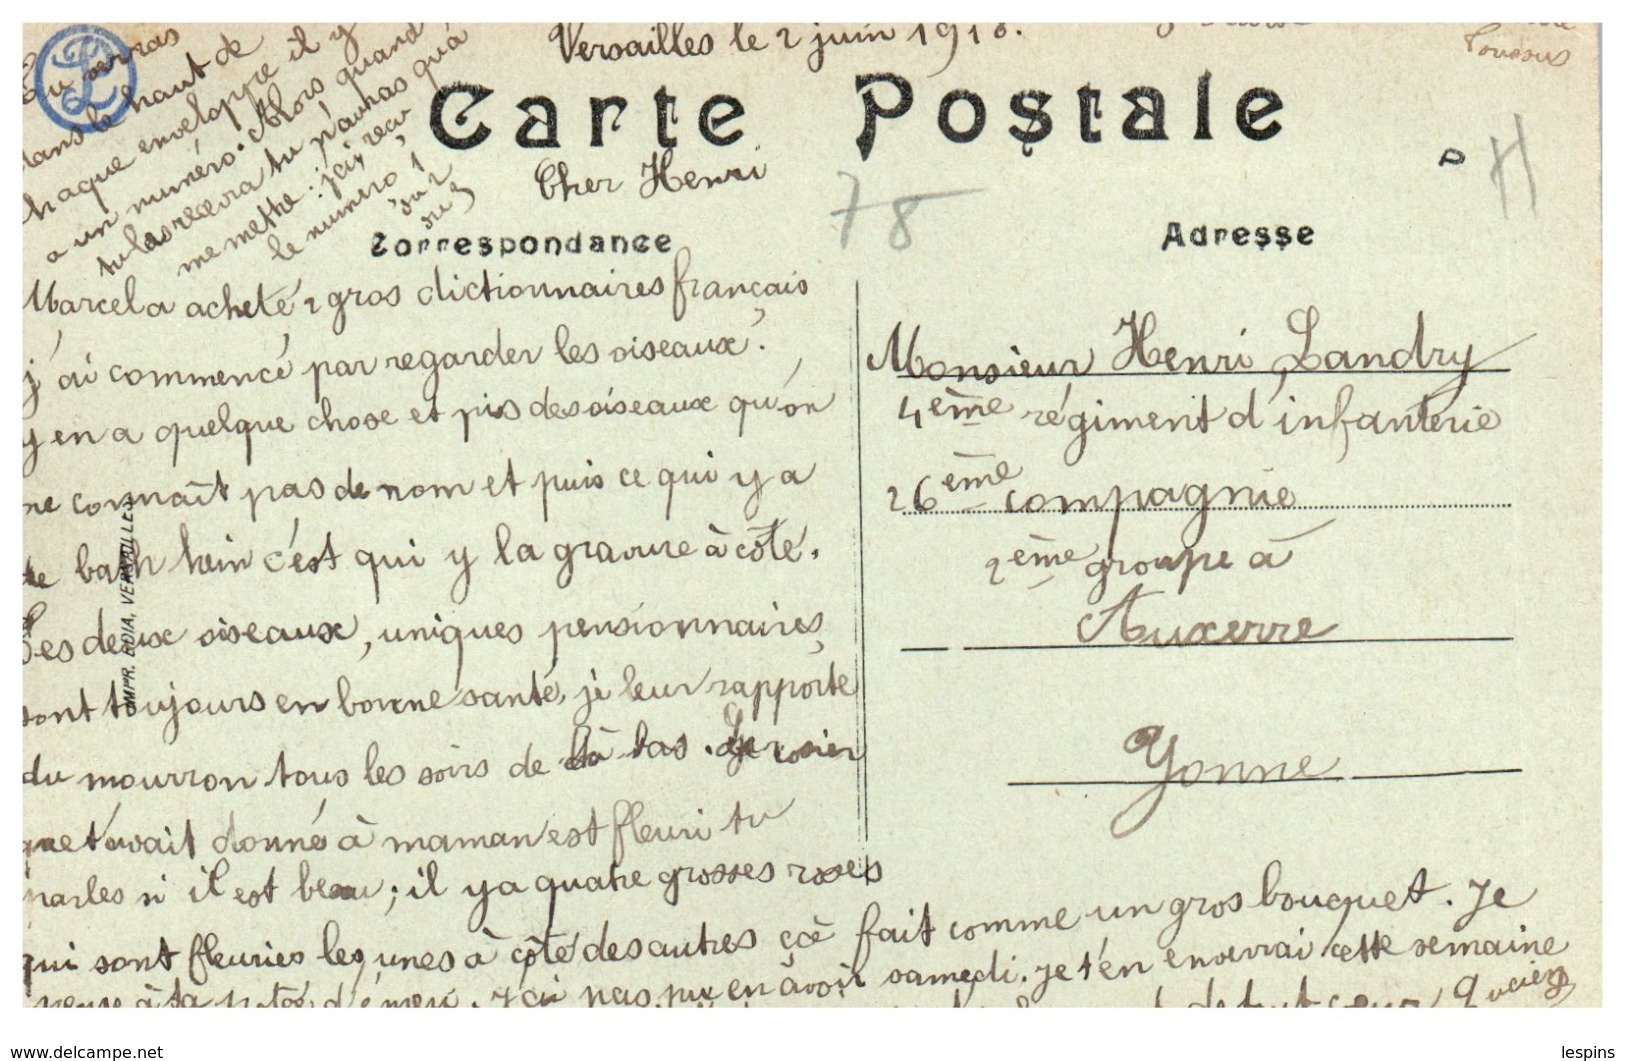 Versailles le 2 juin 1918.
Toussus
Tu verras
dans le haut de
chaque enveloppe il y
a un numéro. Alors quand
tu las recevra tu n'auras qu'à
me mettre : j'ai reçu
le numéro 1
ou 2
ou 3
Carte Postale
Cher Henri
78
H
Correspondance
Adresse
Marcel a acheté 2 gros dictionnaires français
j'ai commencé par regarder les oiseaux.
y en a quelque chose et pis des oiseaux qu'on
ne connaît pas de nom et puis ce qui y a
de bath hein c'est qui y la gravure à côté.
Les deux oiseaux, uniques pensionnaires
sont toujours en bonne santé, je leur rapporte
du mourron tous les soirs de là bas. Le rosier
que t'avait donné à maman est fleuri tu
parles si il est beau ; il y a quatre grosses roses
qui sont fleuries les unes à côté des autres çà fait comme un gros bouquet. Je
pense à ta photo d'émeri. J'ai pas pu en avoir samedi. Je t'en enverrai cette semaine
de tout coeur Lucien
Monsieur Henri Landry
4ème régiment d'infanterie
26ème compagnie
2ème groupe à
Auxerre
Yonne
IMPR. EDIA, VERSAILLES
www.delcampe.net
lespins